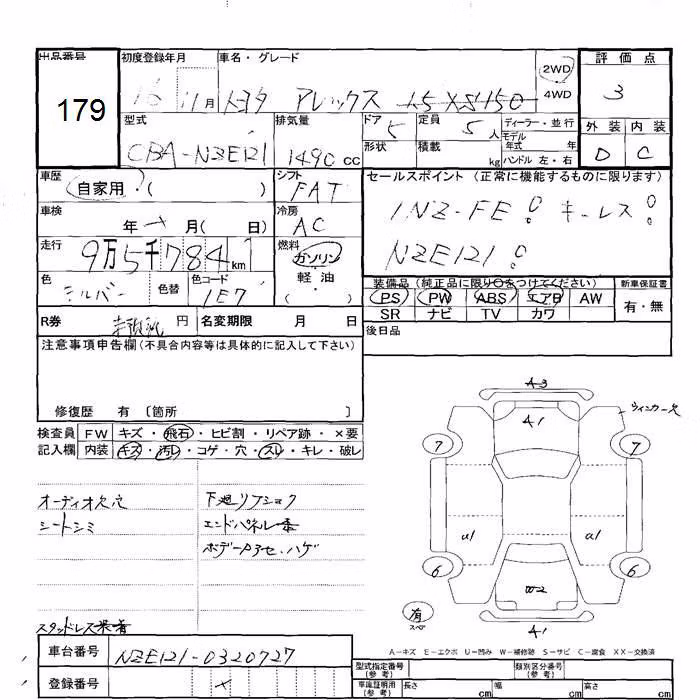 出品番号 初度登録年月 車名・グレード 2WD 評価点
179 16 11月 トヨタ アレックス 1.5 XS150 4WD 3
型式 排気量 ドア 5 定員 5人 ディーラー・並行 外装 内装
CBA-NZE121 1490 cc 形状 積載 kg モデル年式 年 ハンドル 左・右 D C
車歴 自家用・( ) シフト FAT セールスポイント (正常に機能するものに限ります)
車検 年 × 月 ( 日) 冷房 AC 1NZ-FE! キーレス!
走行 9万5千784km 燃料 ガソリン NZE121!
軽油・( )
色 シルバー 色替 色コード 1E7 装備品 (純正品に限り○をつけてください) 新車保証書
PS PW ABS エアB AW 有・無
SR ナビ TV カワ
R券 円 名変期限 月 日 後日品
注意事項申告欄(不具合内容等は具体的に記入して下さい)
修復歴 有 〔箇所 〕
検査員 FW キズ・飛石・ヒビ割・リペア跡・×要
記入欄 内装 キズ・汚れ・コゲ・穴・スレ・キレ・破レ
オーディオ欠 穴 下廻りサビ
シートシミ エンドパネル
ハゲ
スタッドレス装着
A3
A1
ウィンカー欠
7 7
U1 A1
6 6
W2
有 スペア
A1
A-キズ E-エクボ U-凹み W-補修跡 S-サビ C-腐食 XX-交換済
車台番号 NZE121-0320727
登録番号 ×
型式指定番号(参考) 類別区分番号(参考)
車庫証明用(参考) 長さ cm 幅 cm 高さ cm